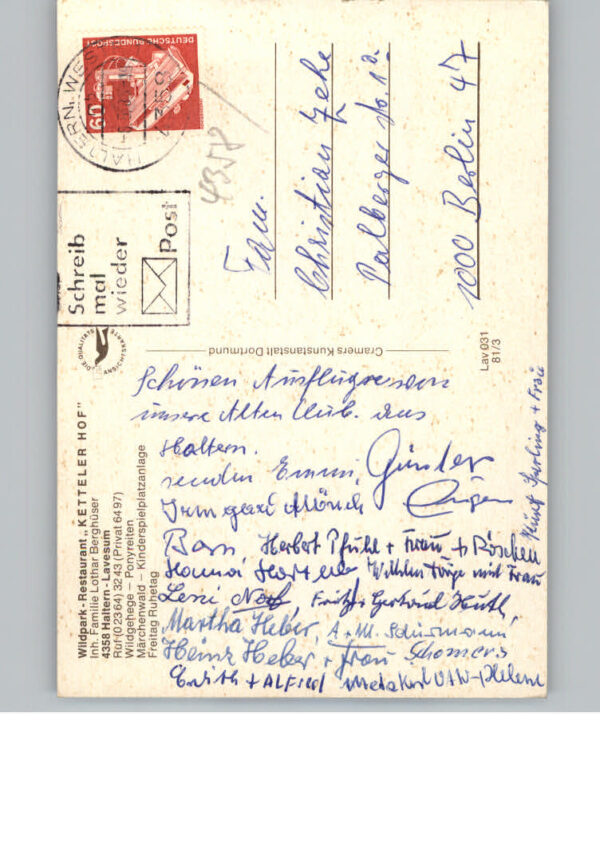 DEUTSCHE BUNDESPOST
60
HALTERN, WES
4358
Schreib
mal
wieder
Post
Fam.
Christian Zehe
1000 Berlin 47
Cramers Kunstanstalt Dortmund
Lav 031
81/3
DIE QUALITÄTS ANSICHTSKARTE
Wildpark-Restaurant „KETTELER HOF"
Inh. Familie Lothar Berghüser
4358 Haltern-Lavesum
Ruf (0 23 64) 32 43 (Privat 64 97)
Wildgehege – Ponyreiten
Märchenwald – Kinderspielplatzanlage
Freitag Ruhetag
Schönen
unsere Alten Club. aus
Haltern.
senden Emmi, Günter
Irmgard Mönch Eugen
Born Herbert Pfuhl + Frau + Röschen
Hanna Wilhelm und Frau
Leni Fritz + Gertrud Huth,
Martha Heber, A. + M. Schürmann
Heinz Heber + Frau Schomers
Edith + ALFred
+ Frau